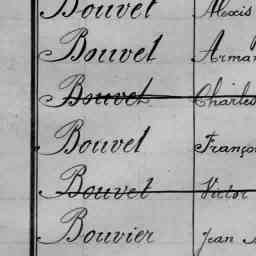 Bouvet Alexis
Bouvet Arman
Bouvet Charles
Bouvet Franço
Bouvet Victor
Bouvier Jean